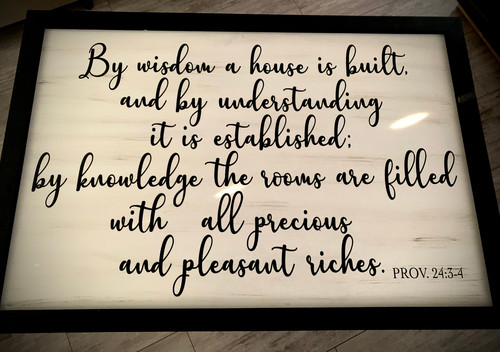 By wisdom a house is built,
and by understanding
it is established;
by knowledge the rooms are filled
with all precious
and pleasant riches.
PROV. 24:3-4